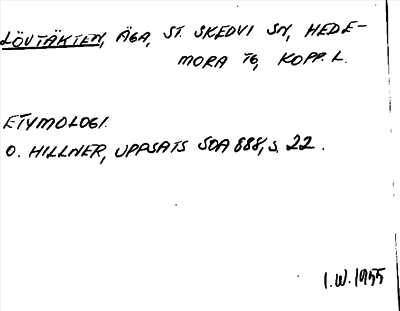 LÖVTÄKTEN, ÄGA, ST. SKEDVI SN, HEDE-
MORA TG, KOPP. L.
ETYMOLOGI.
O. HILLNER, UPPSATS SOA 888, S. 22.
I.W. 1955